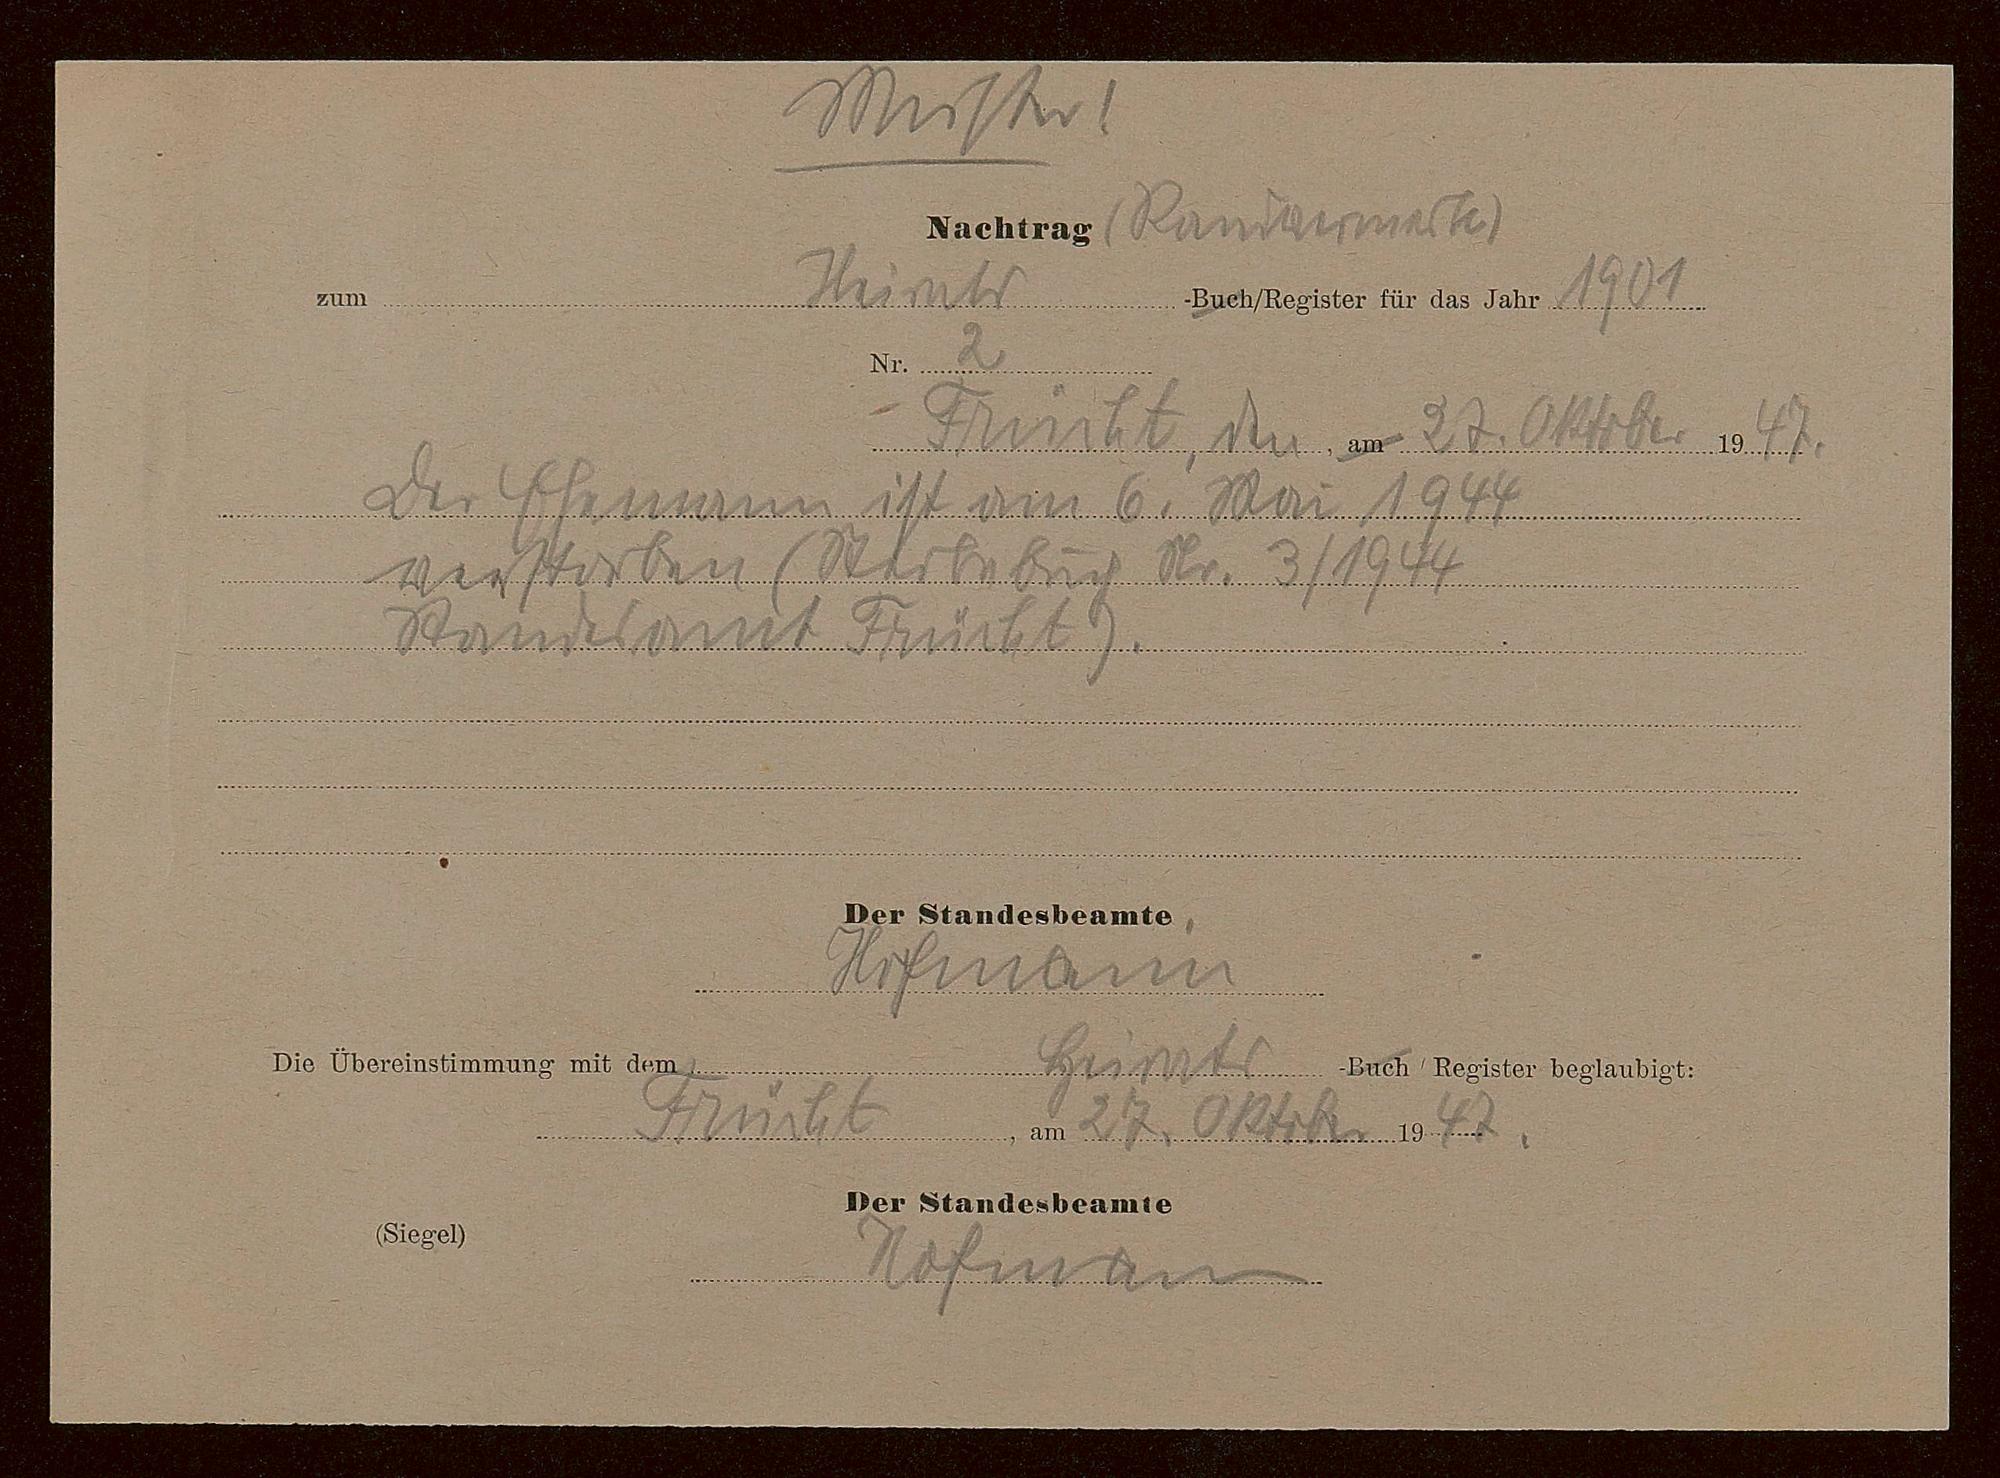 Muster!
Nachtrag (Randvermerk)
zum Heirats -Buch/Register für das Jahr 1901
Nr. 2
Frücht, den, am 27. Oktober 1947.
Der Ehemann ist am 6. Mai 1944
verstorben (Sterbebuch Nr. 3/1944
Standesamt Frücht).
Der Standesbeamte,
Hofmann
Die Übereinstimmung mit dem Heirats -Buch / Register beglaubigt:
Frücht, am 27. Oktober 1947.
Der Standesbeamte
(Siegel)
Hofmann